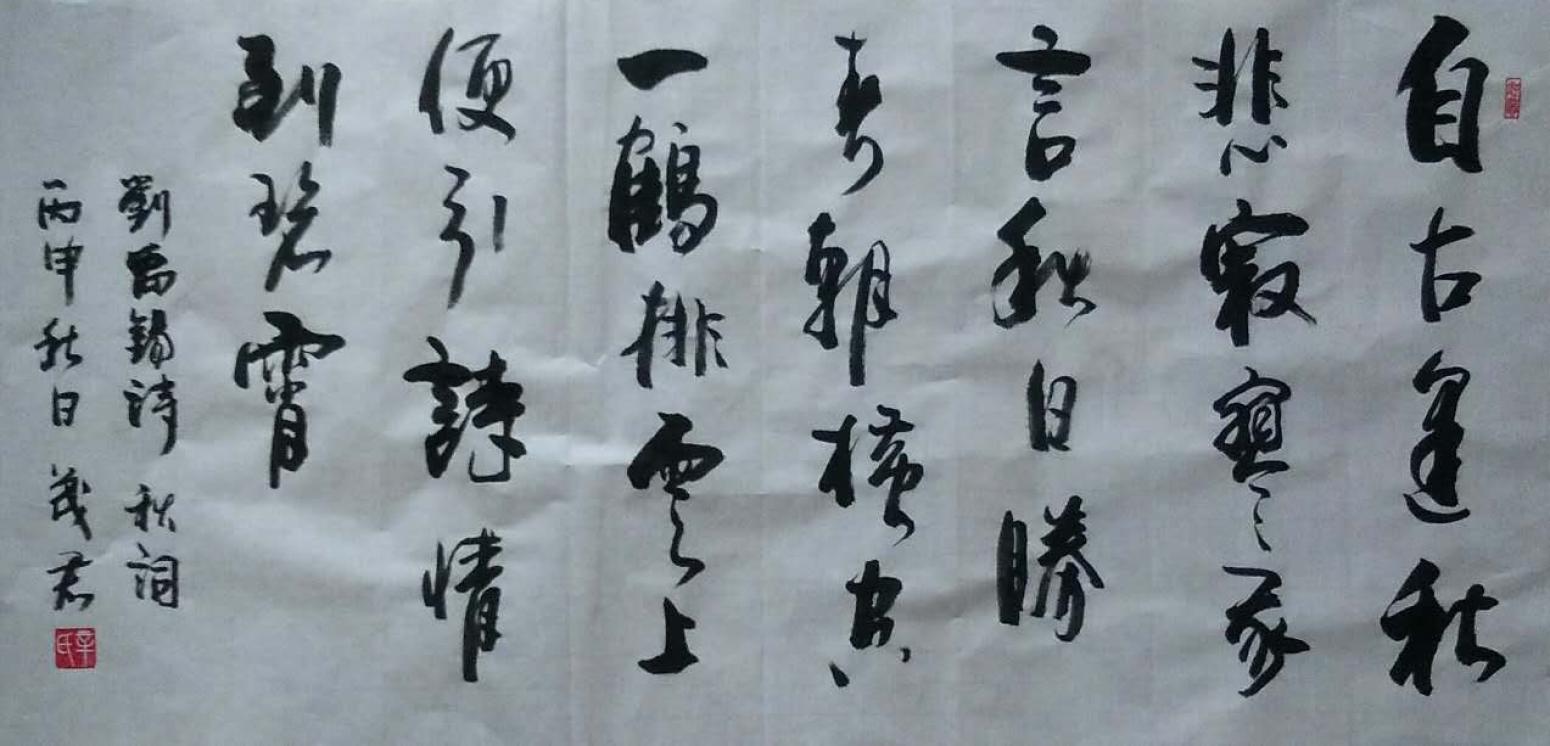 自古逢秋
悲寂寥我
言秋日勝
春朝橫空
一鶴排雲上
便引詩情
到碧霄
劉禹錫詩 秋詞
丙申秋日 茂君
辛氏